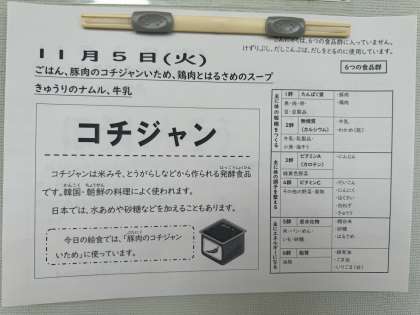 こんだてひょうは、6つの食品群に入っていません。
けずりぶし、だしこんぶは、だしをとるのに使用しています。
11月5日(火)
ごはん、豚肉のコチジャンいため、鶏肉とはるさめのスープ
きゅうりのナムル、牛乳
6つの食品群
コチジャン
コチジャンは米みそ、とうがらしなどから作られる発酵食品
です。韓国・朝鮮の料理によく使われます。
日本では、水あめや砂糖などを加えることもあります。
今日の給食では、「豚肉のコチジャン
いため」に使っています。
1群 たんぱく質
・豚肉
・鶏肉
2群 無機質
(カルシウム)
・牛乳
・わかめ(乾)
牛乳・乳製品・
小魚・海そう
3群 ビタミンA
(カロテン)
・にんじん
緑黄色野菜
4群 ビタミンC
その他の野菜・果物
・にんにく
・はくさい
・きゅうり
5群 炭水化物
米・パン・めん・
いも・砂糖
・砂糖
・はるさめ
6群 脂質
油脂
・ごま油